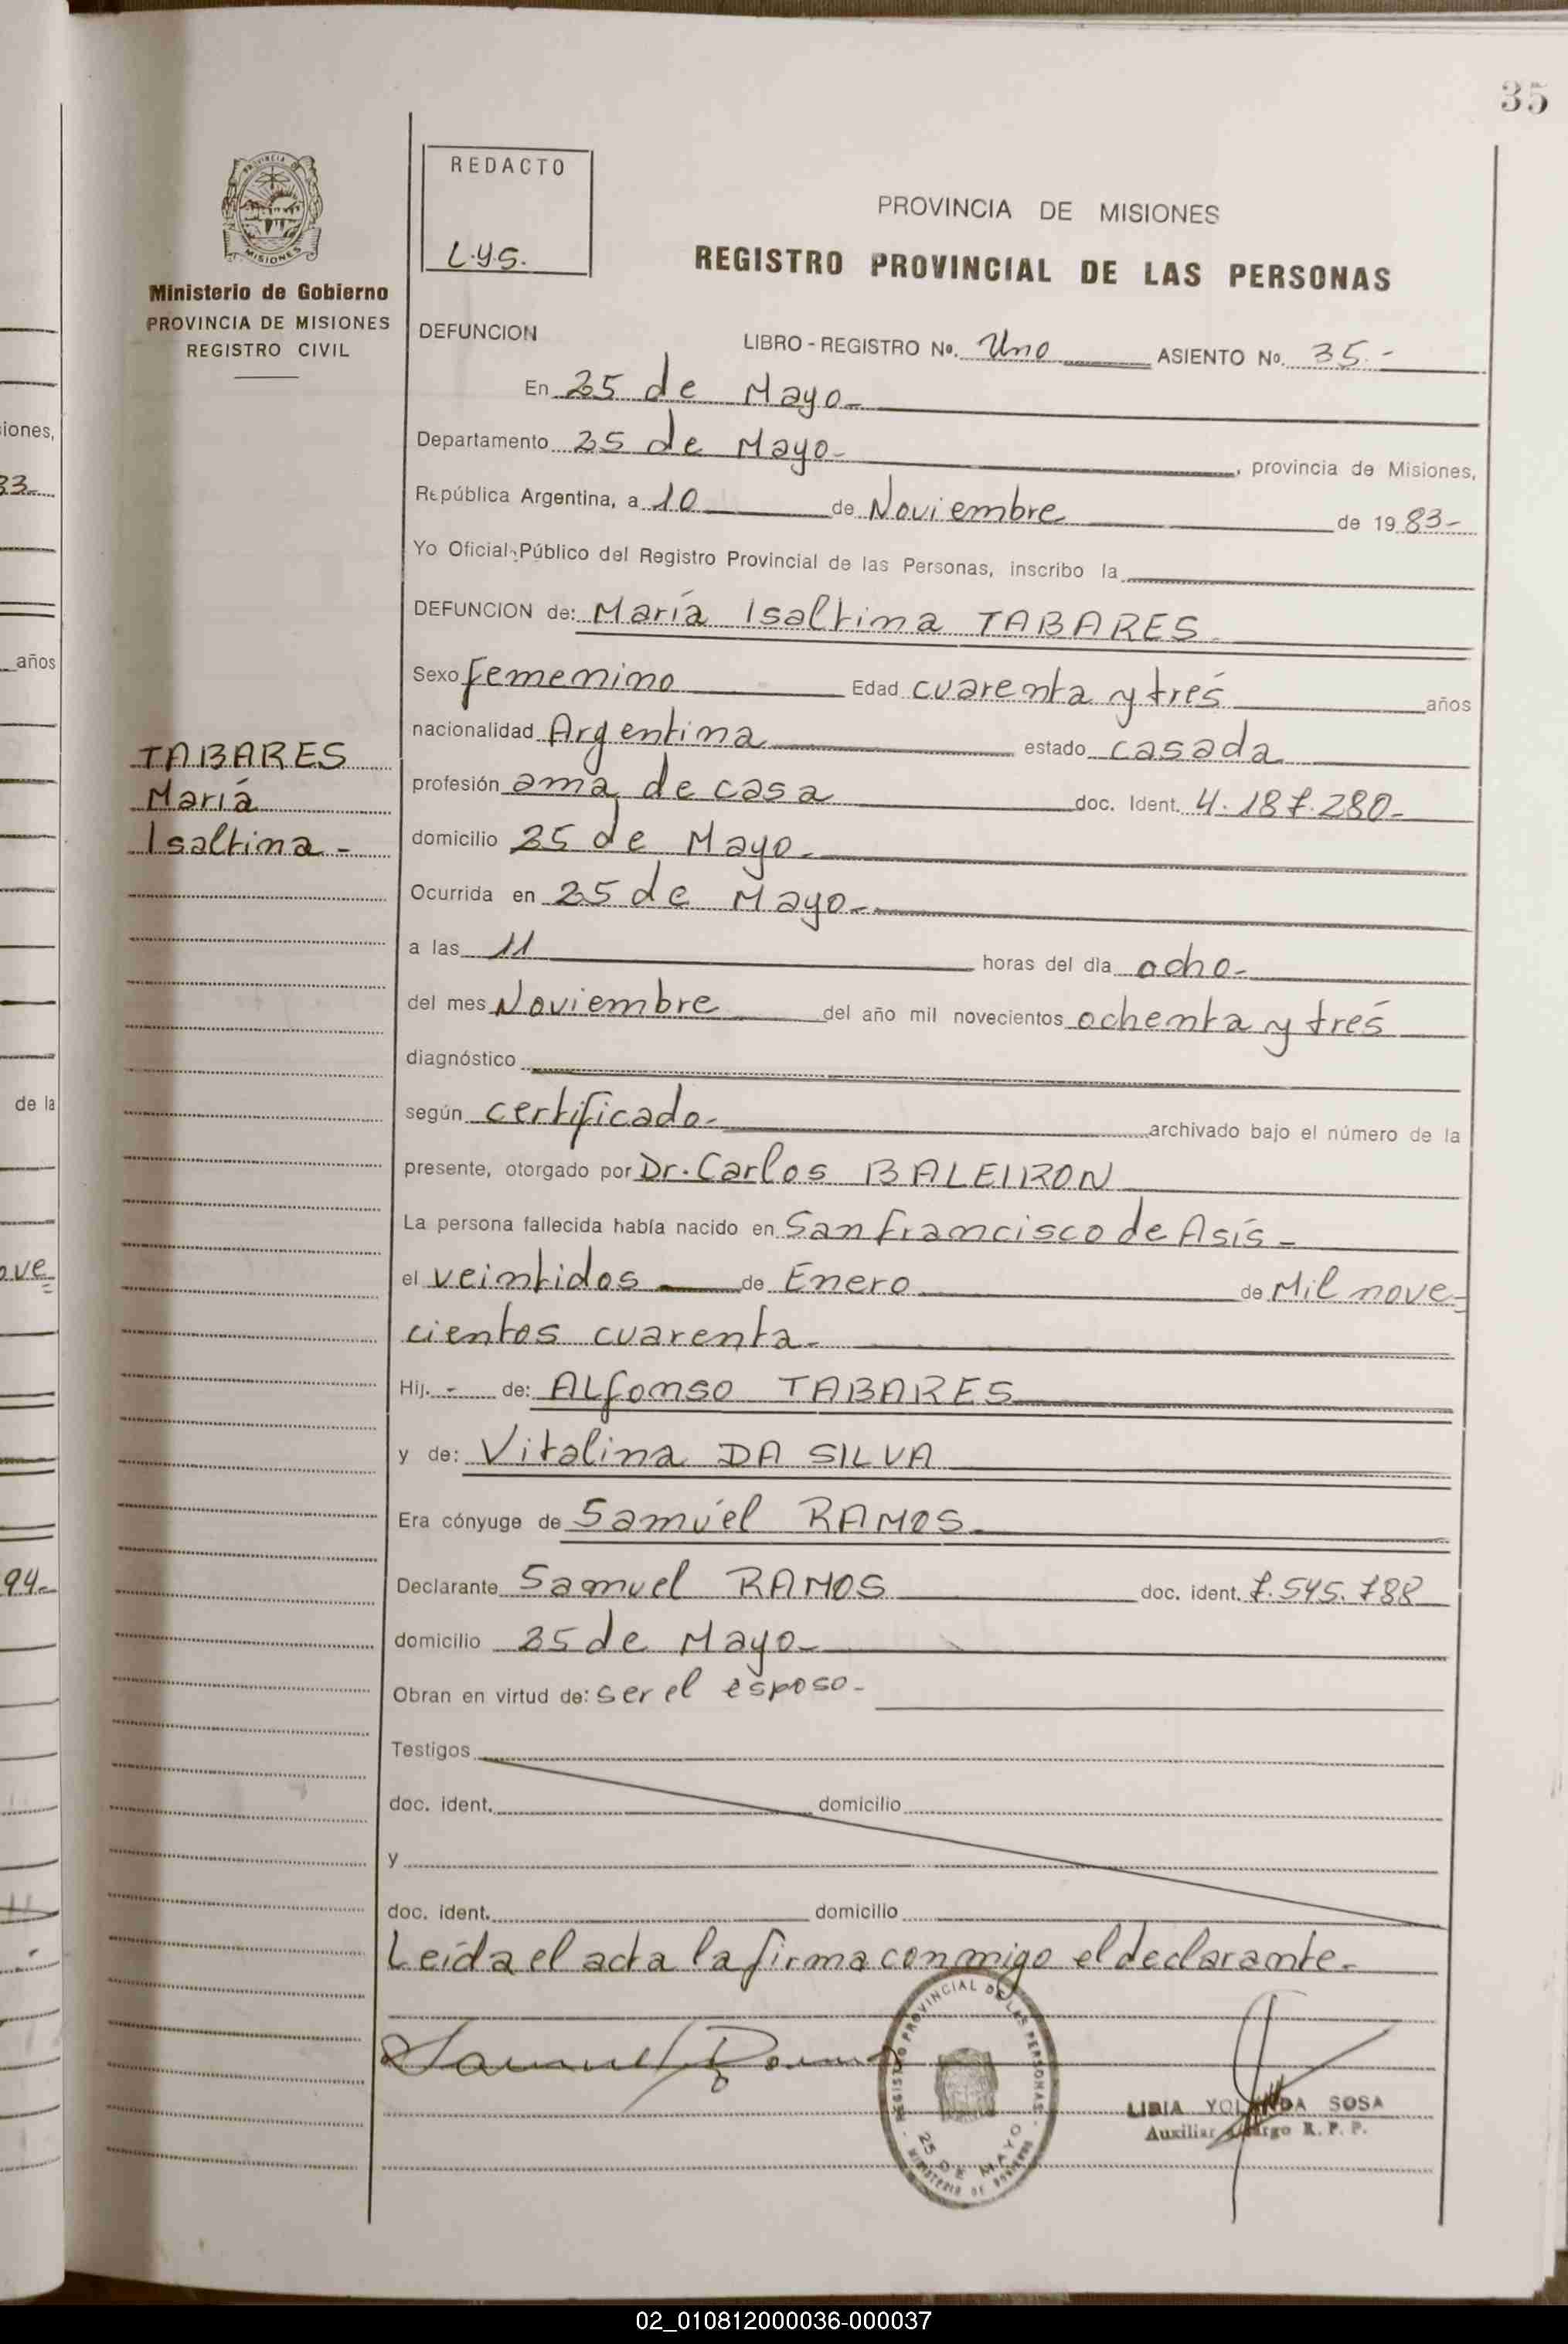 35
REDACTO
L.Y.S.
MISIONES
Ministerio de Gobierno
PROVINCIA DE MISIONES
REGISTRO CIVIL
PROVINCIA DE MISIONES
REGISTRO PROVINCIAL DE LAS PERSONAS
DEFUNCION LIBRO - REGISTRO Nº. Uno ASIENTO Nº. 35.-
En 25 de Mayo-
Departamento 25 de Mayo- , provincia de Misiones,
República Argentina, a 10 de Noviembre de 1983-
Yo Oficial Público del Registro Provincial de las Personas, inscribo la
DEFUNCION de: María Isaltina TABARES
Sexo femenino Edad cuarenta y tres años
nacionalidad Argentina estado casada
profesión ama de casa doc. Ident. 4.187.280-
domicilio 25 de Mayo-
Ocurrida en 25 de Mayo-
a las 11 horas del día ocho-
del mes Noviembre del año mil novecientos ochenta y tres
diagnóstico
según certificado- archivado bajo el número de la
presente, otorgado por Dr. Carlos BALEIRON
La persona fallecida había nacido en San francisco de Asís-
el veintidos de Enero de Mil nove-
cientos cuarenta-
Hij. - de: Alfonso TABARES
y de: Vitalina DA SILVA
Era cónyuge de Samúel RAMOS
Declarante Samuel RAMOS doc. ident. 7.545.788
domicilio 25 de Mayo-
Obran en virtud de: ser el esposo-
Testigos
doc. ident. domicilio
y
doc. ident. domicilio
Leída el acta la firma conmigo el declarante-
TABARES
María
Isaltina -
Samuel Ramos
REGISTRO PROVINCIAL DE LAS PERSONAS
25 DE MAYO
MINISTERIO DE GOBIERNO
LIBIA YOLANDA SOSA
Auxiliar Cargo R. P. P.
iones,
83-
años
de la
ove
94-
02_010812000036-000037